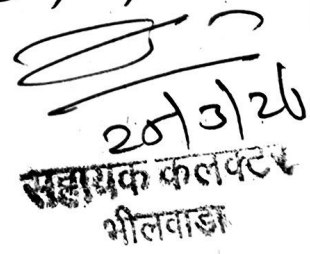 20/3/26
सहायक कलक्टर
भीलवाडा